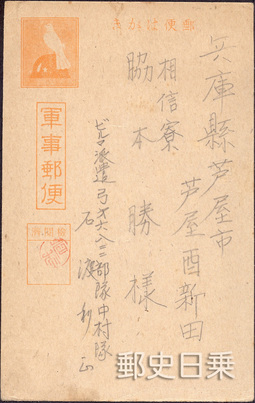 郵便はがき
軍事郵便
検閲済
兵庫縣芦屋市
芦屋酉新田
相信寮
脇本勝様
ビルマ派遣弓第六八二二部隊中村隊
石渡
郵史日乗